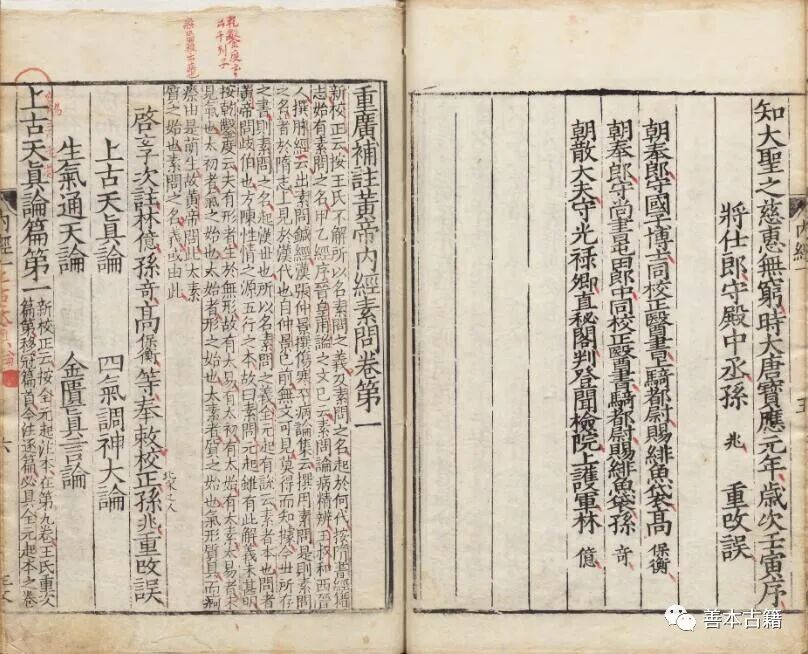 知大聖之慈惠無窮時大唐寶應元年歲次壬寅序
將仕郎守殿中丞孫 兆 重改誤
朝奉郎守國子博士同校正醫書上騎都尉賜緋魚袋高 保衡
朝奉郎守尚書屯田郎中同校正醫書騎都尉賜緋魚袋孫 奇
朝散大夫守光祿卿直秘閣判登聞檢院上護軍林 億
重廣補註黃帝內經素問卷第一
新校正云按王氏不解所以名素問之義及素問之名起於何代按隋書經籍
志始有素問之名甲乙經序晉皇甫謐之文已云素問論病精辨王叔和西晉
人撰脉經云出素問鍼經漢張仲景撰傷寒卒病論集云撰用素問是則素問
之名著於隋志上見於漢代也自仲景已前無文可見莫得而知據今世所存
之書則素問之名起漢世也所以名素問之義全元起有說云素者本也問者
黃帝問歧伯也方陳性情之源五行之本故曰素問元起雖有此解義未甚明
按乾鑿度云夫有形者生於無形故有太易有太初有太始有太素太易者未
見氣也太初者氣之始也太始者形之始也太素者質之始也氣形質具而痾
瘵由是萌生故黃帝問此太素
質之始也素問之名義或由此
啓玄子次註林億孫奇高保衡等奉敕校正孫兆重改誤
北宋之人
上古天眞論 四氣調神大論
生氣通天論 金匱眞言論
上古天眞論篇第一
新校正云按全元起注本在第九卷王氏重次
篇第移冠篇首今注逐篇必具全元起本之卷
內經一
善本古籍